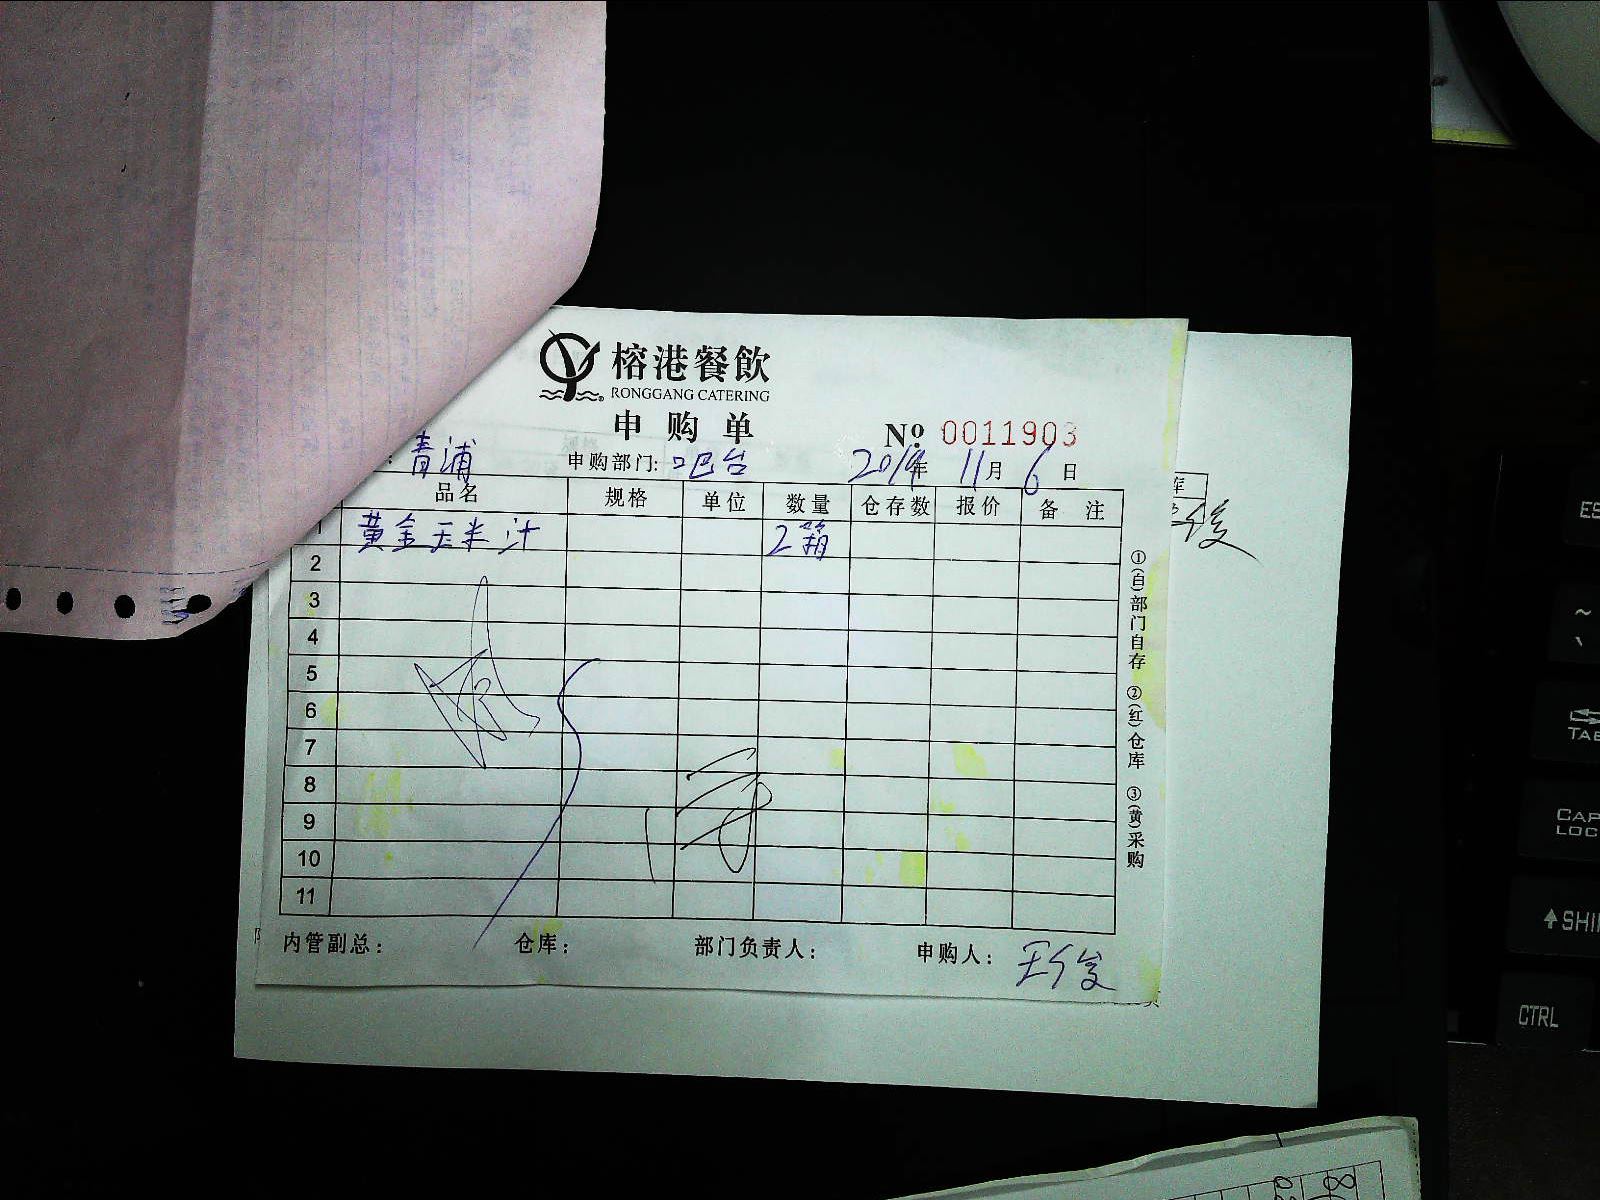 榕港餐飲
RONGGANG CATERING
申购单
№: 0011903
: 青浦 申购部门: 吧台 2019年 11月 6日
品名 规格 单位 数量 仓存数 报价 备 注
1 黄金玉米汁 2箱
2
3
4
5
6
7
8
9
10
11
①(白)部门自存 ②(红)仓库 ③(黄)采购
内管副总: 仓库: 部门负责人: 申购人: 王俊
库
俊
ES
~
TAB
CAP
LOC
SHI
CTRL